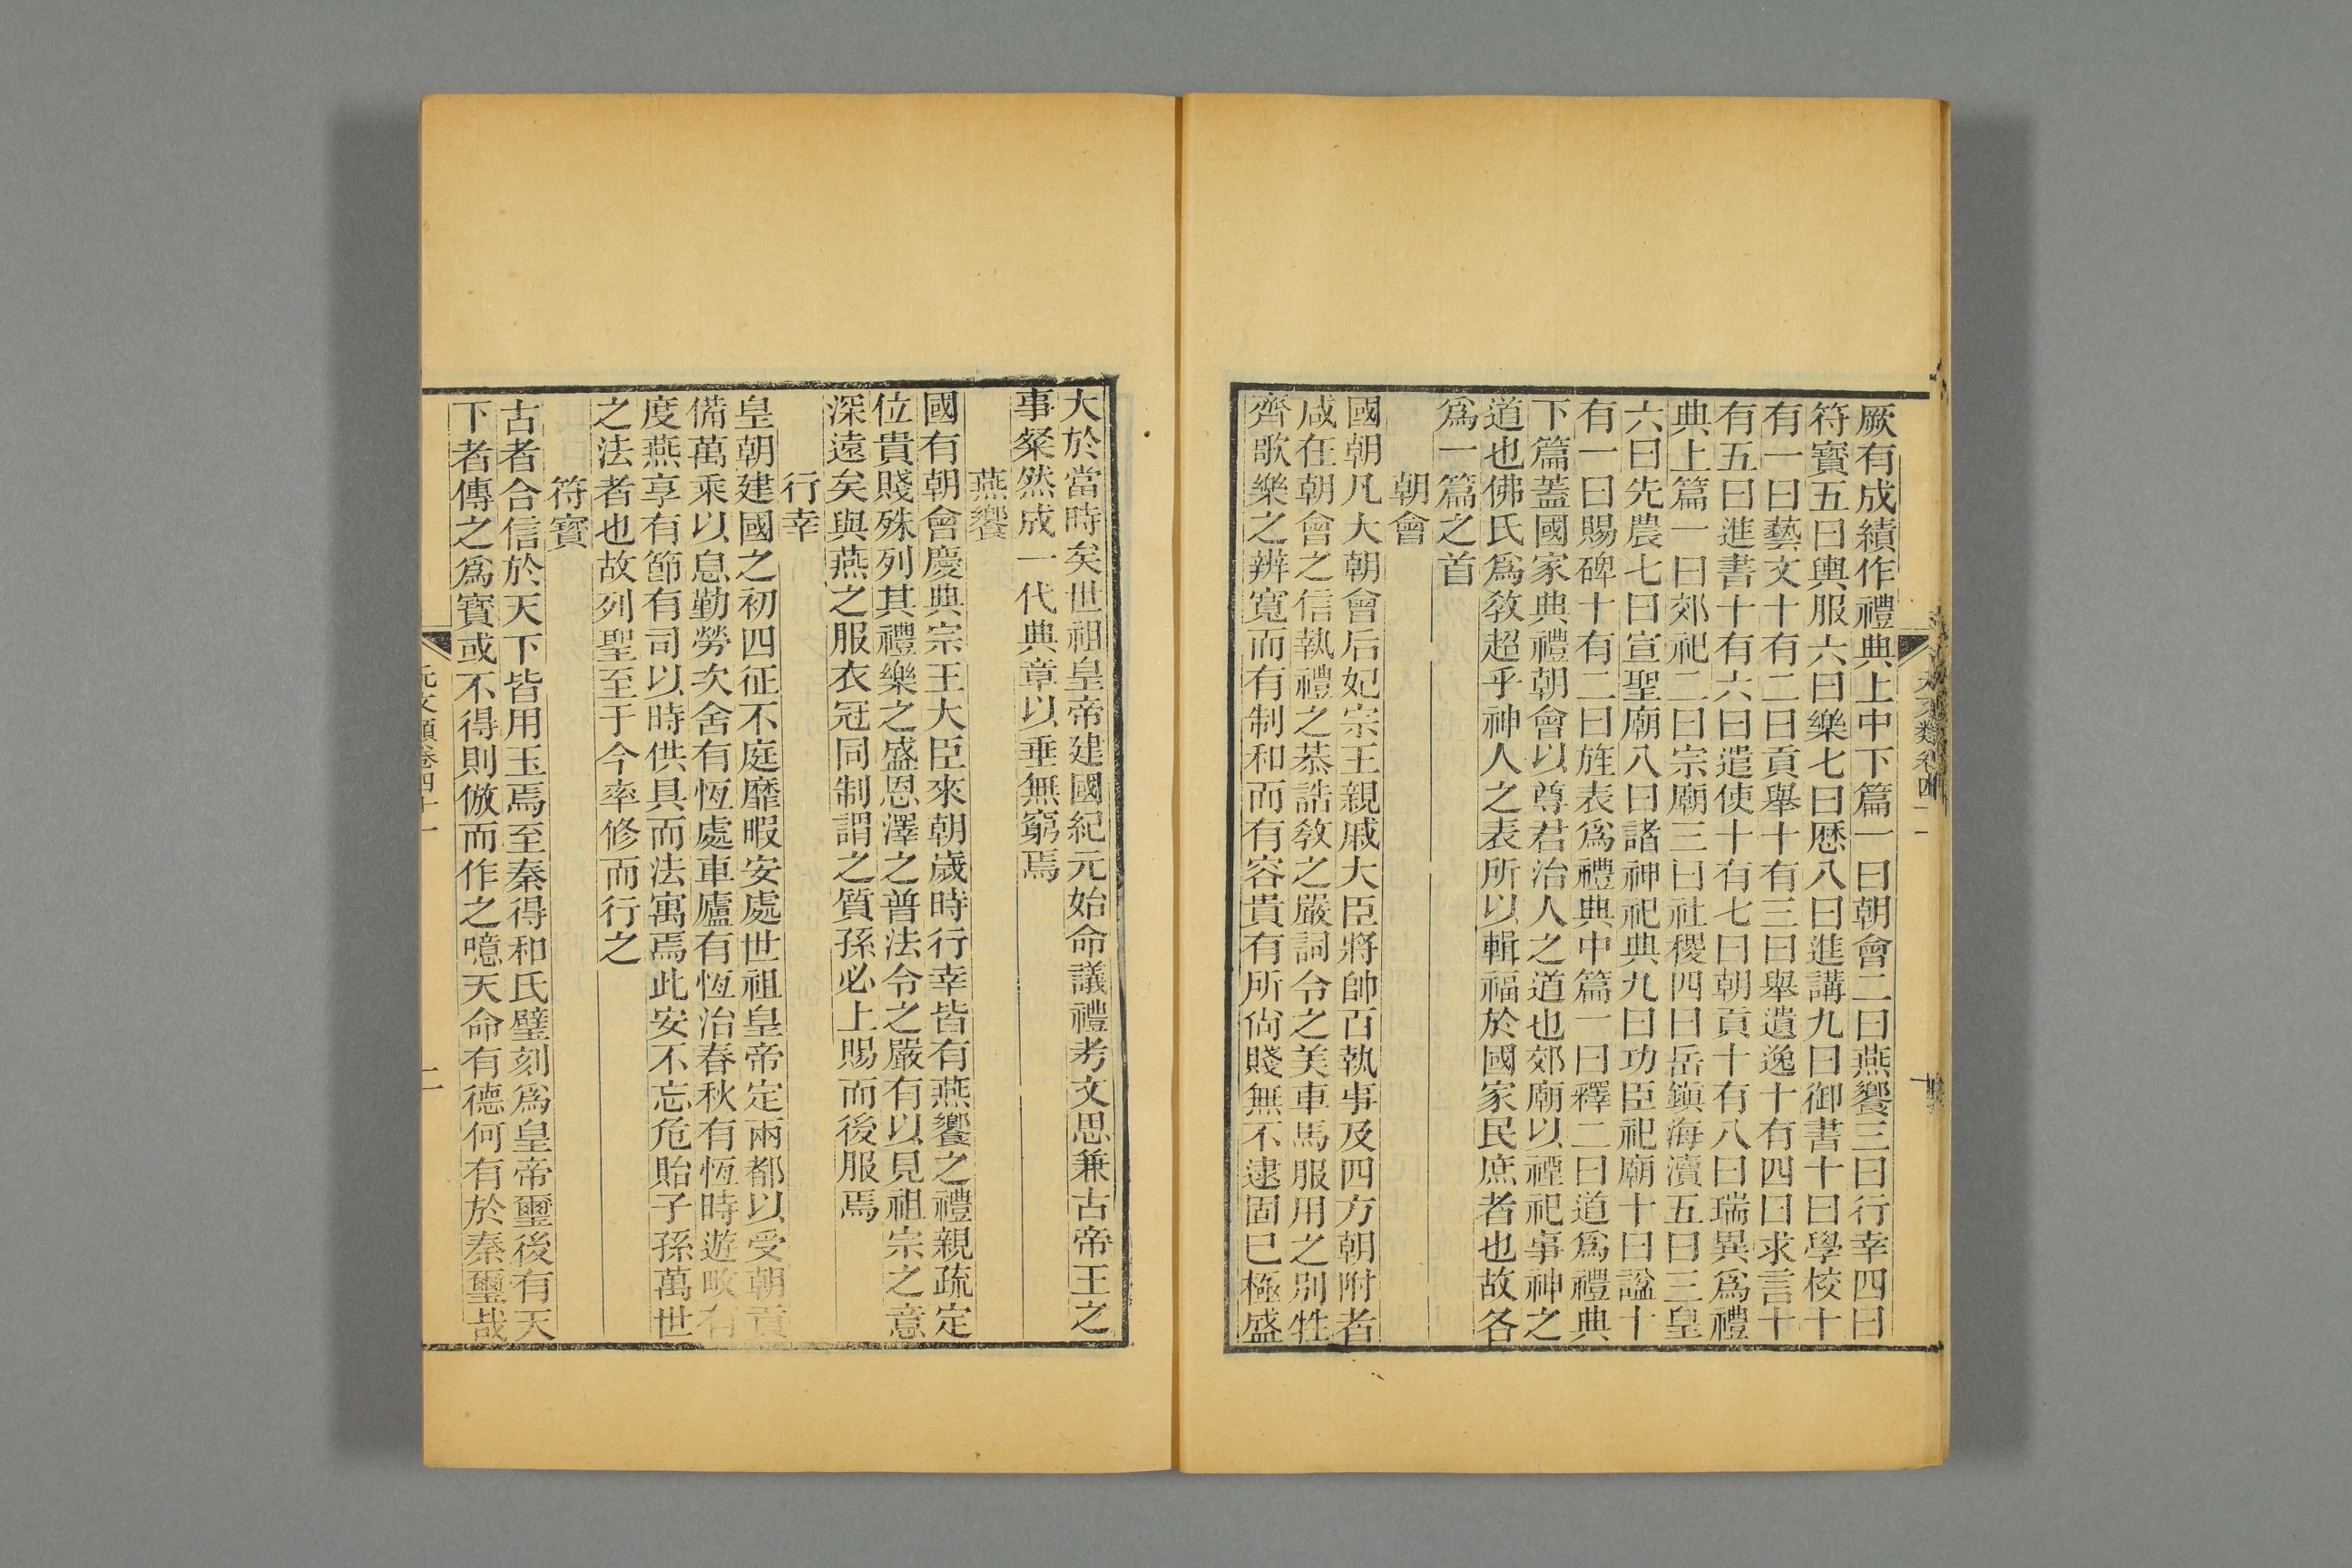 厥有成績作禮典上中下篇一曰朝會二曰燕饗三曰行幸四曰
符寶五曰輿服六曰樂七曰厯八曰進講九曰御書十曰學校十
有一曰藝文十有二曰貢舉十有三曰舉遺逸十有四曰求言十
有五曰進書十有六曰遣使十有七曰朝貢十有八曰瑞異爲禮
典上篇一曰郊祀二曰宗廟三曰社稷四曰岳鎮海瀆五曰三皇
六曰先農七曰宣聖廟八曰諸神祀典九曰功臣祀廟十曰諡十
有一曰賜碑十有二曰旌表爲禮典中篇一曰釋二曰道爲禮典
下篇蓋國家典禮朝會以尊君治人之道也郊廟以禋祀事神之
道也佛氏爲敎超乎神人之表所以輯福於國家民庶者也故各
爲一篇之首
朝會
國朝凡大朝會后妃宗王親戚大臣將帥百執事及四方朝附者
咸在朝會之信執禮之恭誥敎之嚴詞令之美車馬服用之別牲
齊歌樂之辨寬而有制和而有容貴有所尙賤無不逮固已極盛
大於當時矣世祖皇帝建國紀元始命議禮考文思兼古帝王之
事粲然成一代典章以垂無窮焉
燕饗
國有朝會慶典宗王大臣來朝歲時行幸皆有燕饗之禮親疏定
位貴賤殊列其禮樂之盛恩澤之普法令之嚴有以見祖宗之意
深遠矣與燕之服衣冠同制謂之質孫必上賜而後服焉
行幸
皇朝建國之初四征不庭靡暇安處世祖皇帝定兩都以受朝貢
備萬乘以息勤勞次舍有恆處車廬有恆治春秋有恆時遊畋有
度燕享有節有司以時供具而法寓焉此安不忘危貽子孫萬世
之法者也故列聖至于今率修而行之
符寶
古者合信於天下皆用玉焉至秦得和氏璧刻爲皇帝璽後有天
下者傳之爲寶或不得則倣而作之噫天命有德何有於秦璽哉
元文類卷四十一
二